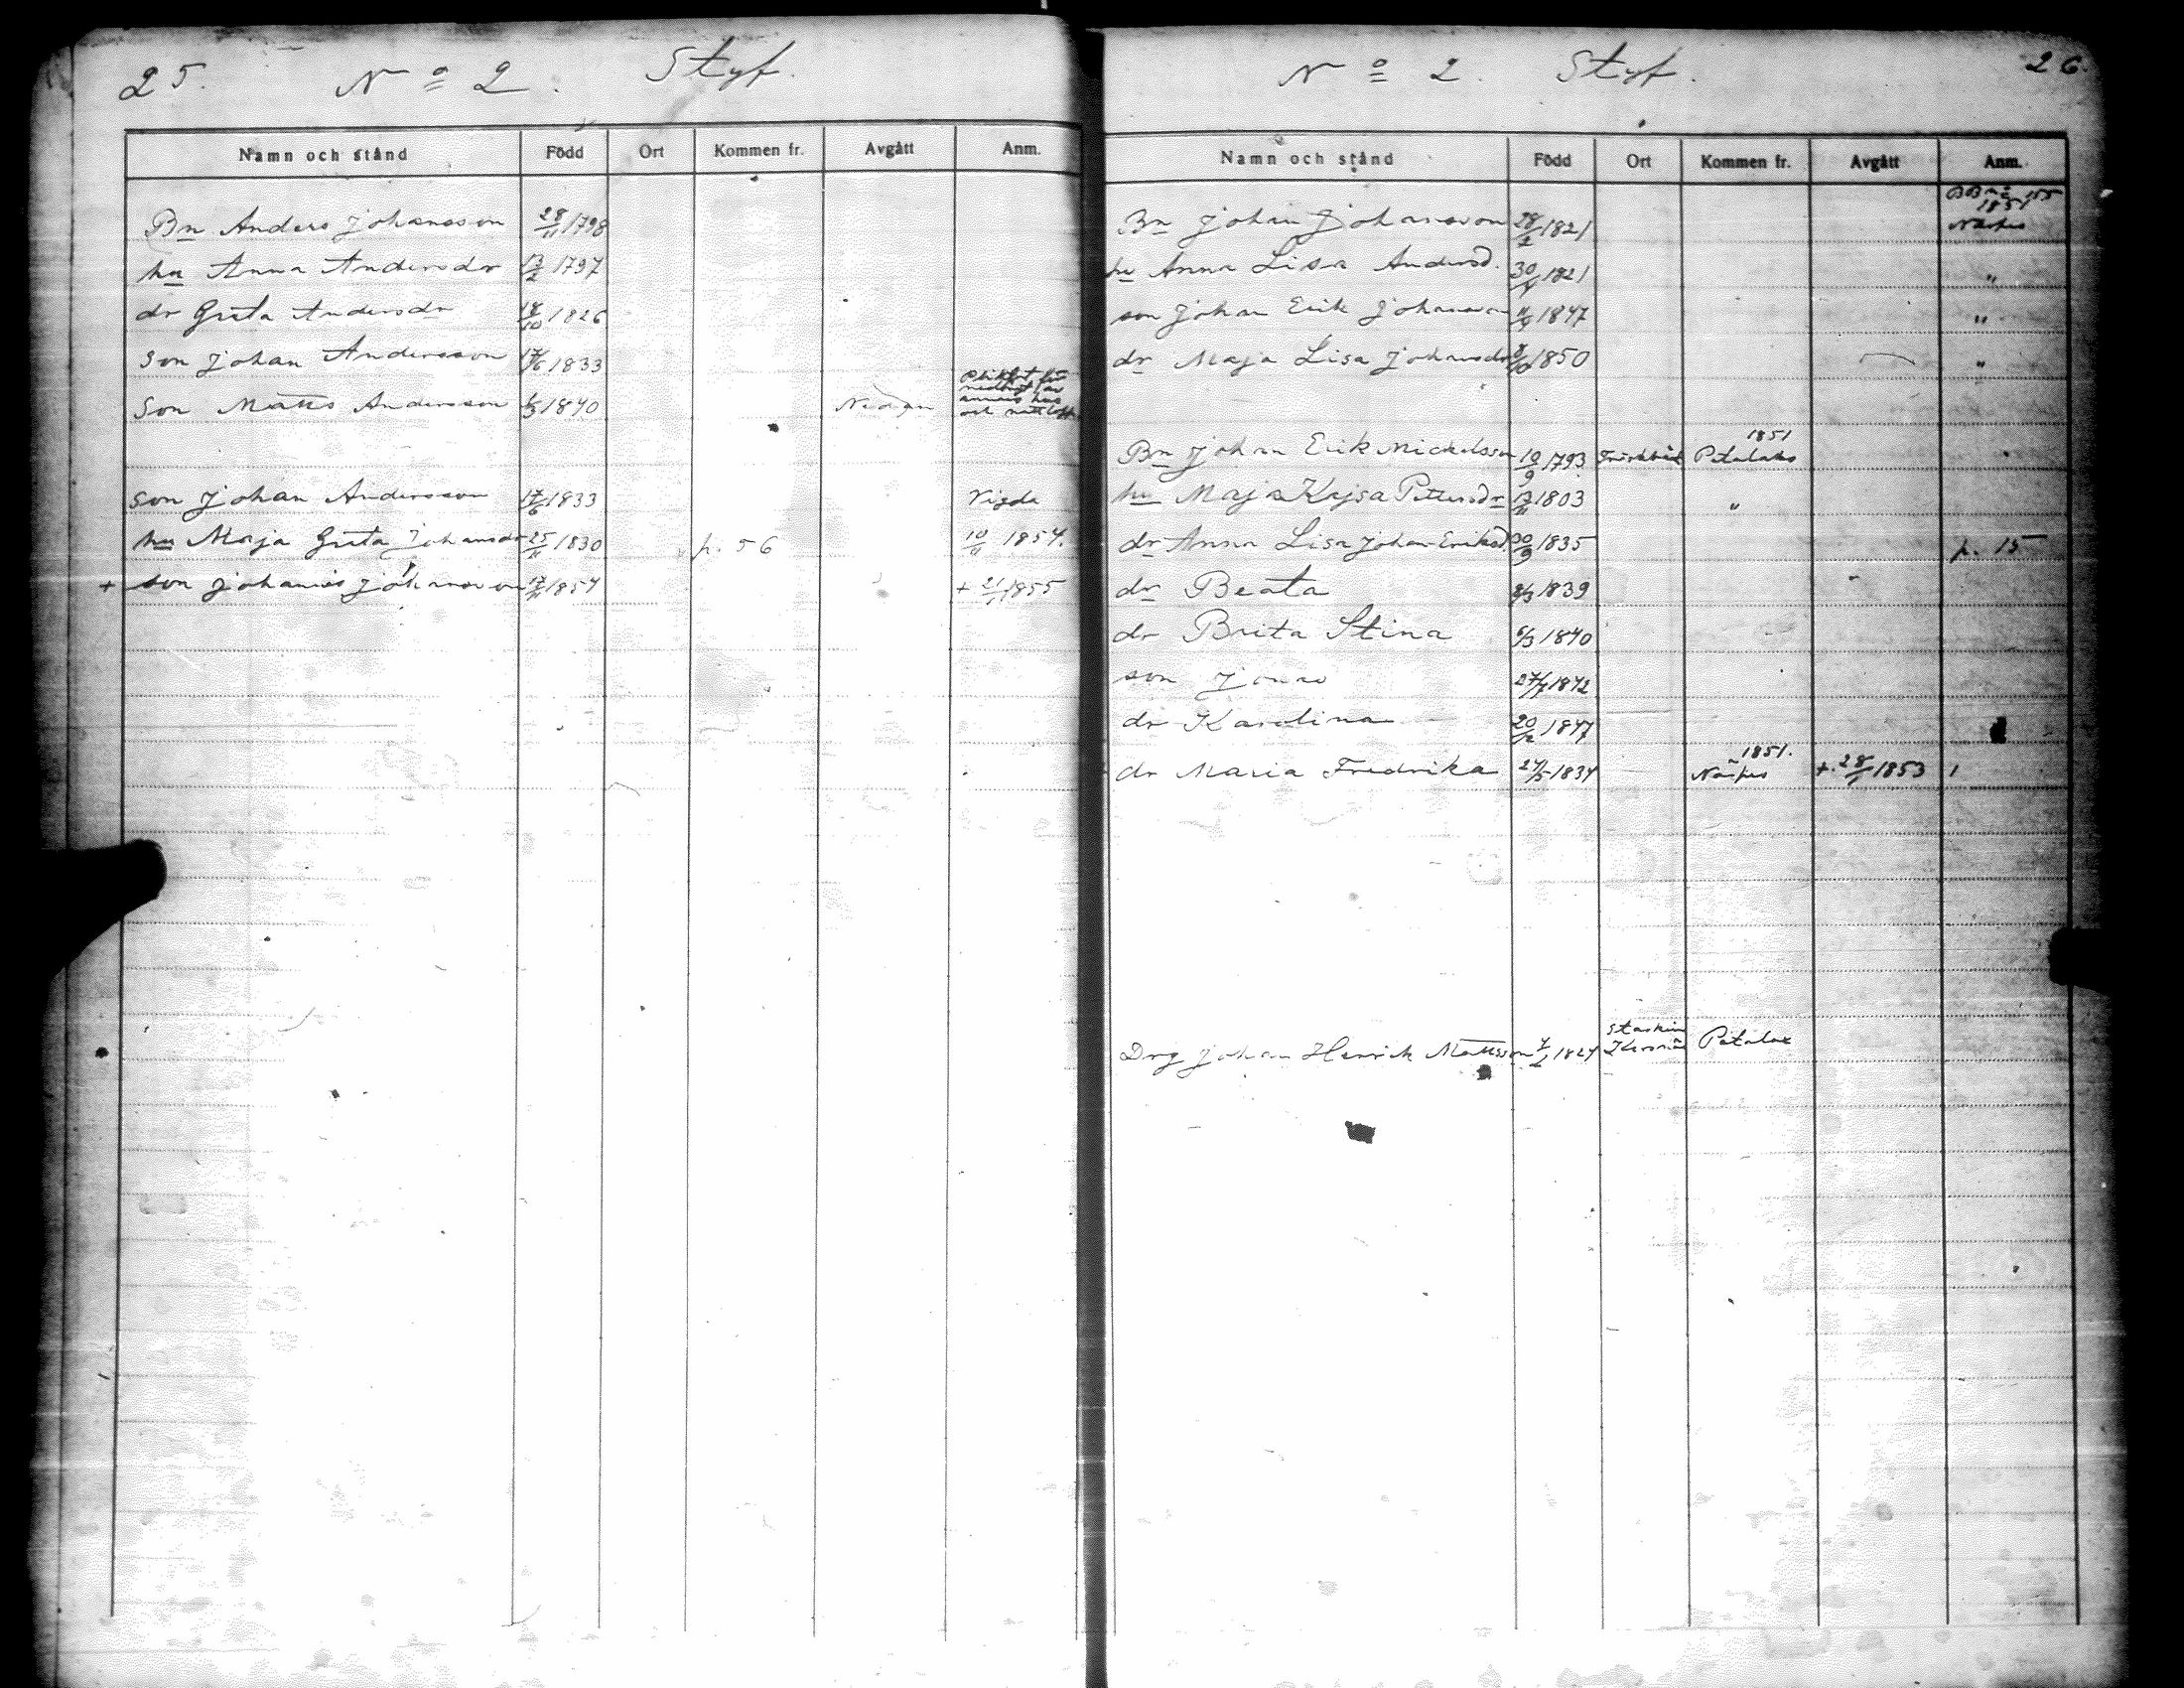 25. No 2. Styf.
Namn och stånd Född Ort Kommen fr. Avgått Anm.
Bn Anders Johansson 28/11 1798
hu Anna Andersdr 13/2 1797
dr Greta Andersdr 18/10 1826
son Johan Andersson 17/6 1833
Son Matts Andersson 1840
son Johan Andersson 17/6 1833 Vigda
hu Maja Greta Johansdr 25/11 1830 p. 56 10/11 1854.
+ son Johannes Johansson 17/11 1854 + 21/1 1855
No 2. Styf. 26.
Namn och stånd Född Ort Kommen fr. Avgått Anm.
1851
Bn Johan Johansson 28/2 1821 Närpes
hu Anna Lisa Andersd. 30/4 1821 "
son Johan Erik Johansson 1847 "
dr Maja Lisa Johansdr 1850 "
1851
Bn Johan Erik Mickelsson 10/9 1793 Petalaks
hu Maja Kajsa Pettersdr 1803 "
dr Anna Lisa Johan-Eriksd. 30/9 1835 p. 15
dr Beata 1839
dr Brita Stina 6/3 1840
son Jonas 1842
dr Karolina 20/12 1847
1851.
dr Maria Fredrika 24/5 1834 Närpes +. 28/1 1853
Drg Johan Henrik Mattsson 1824 Petalax